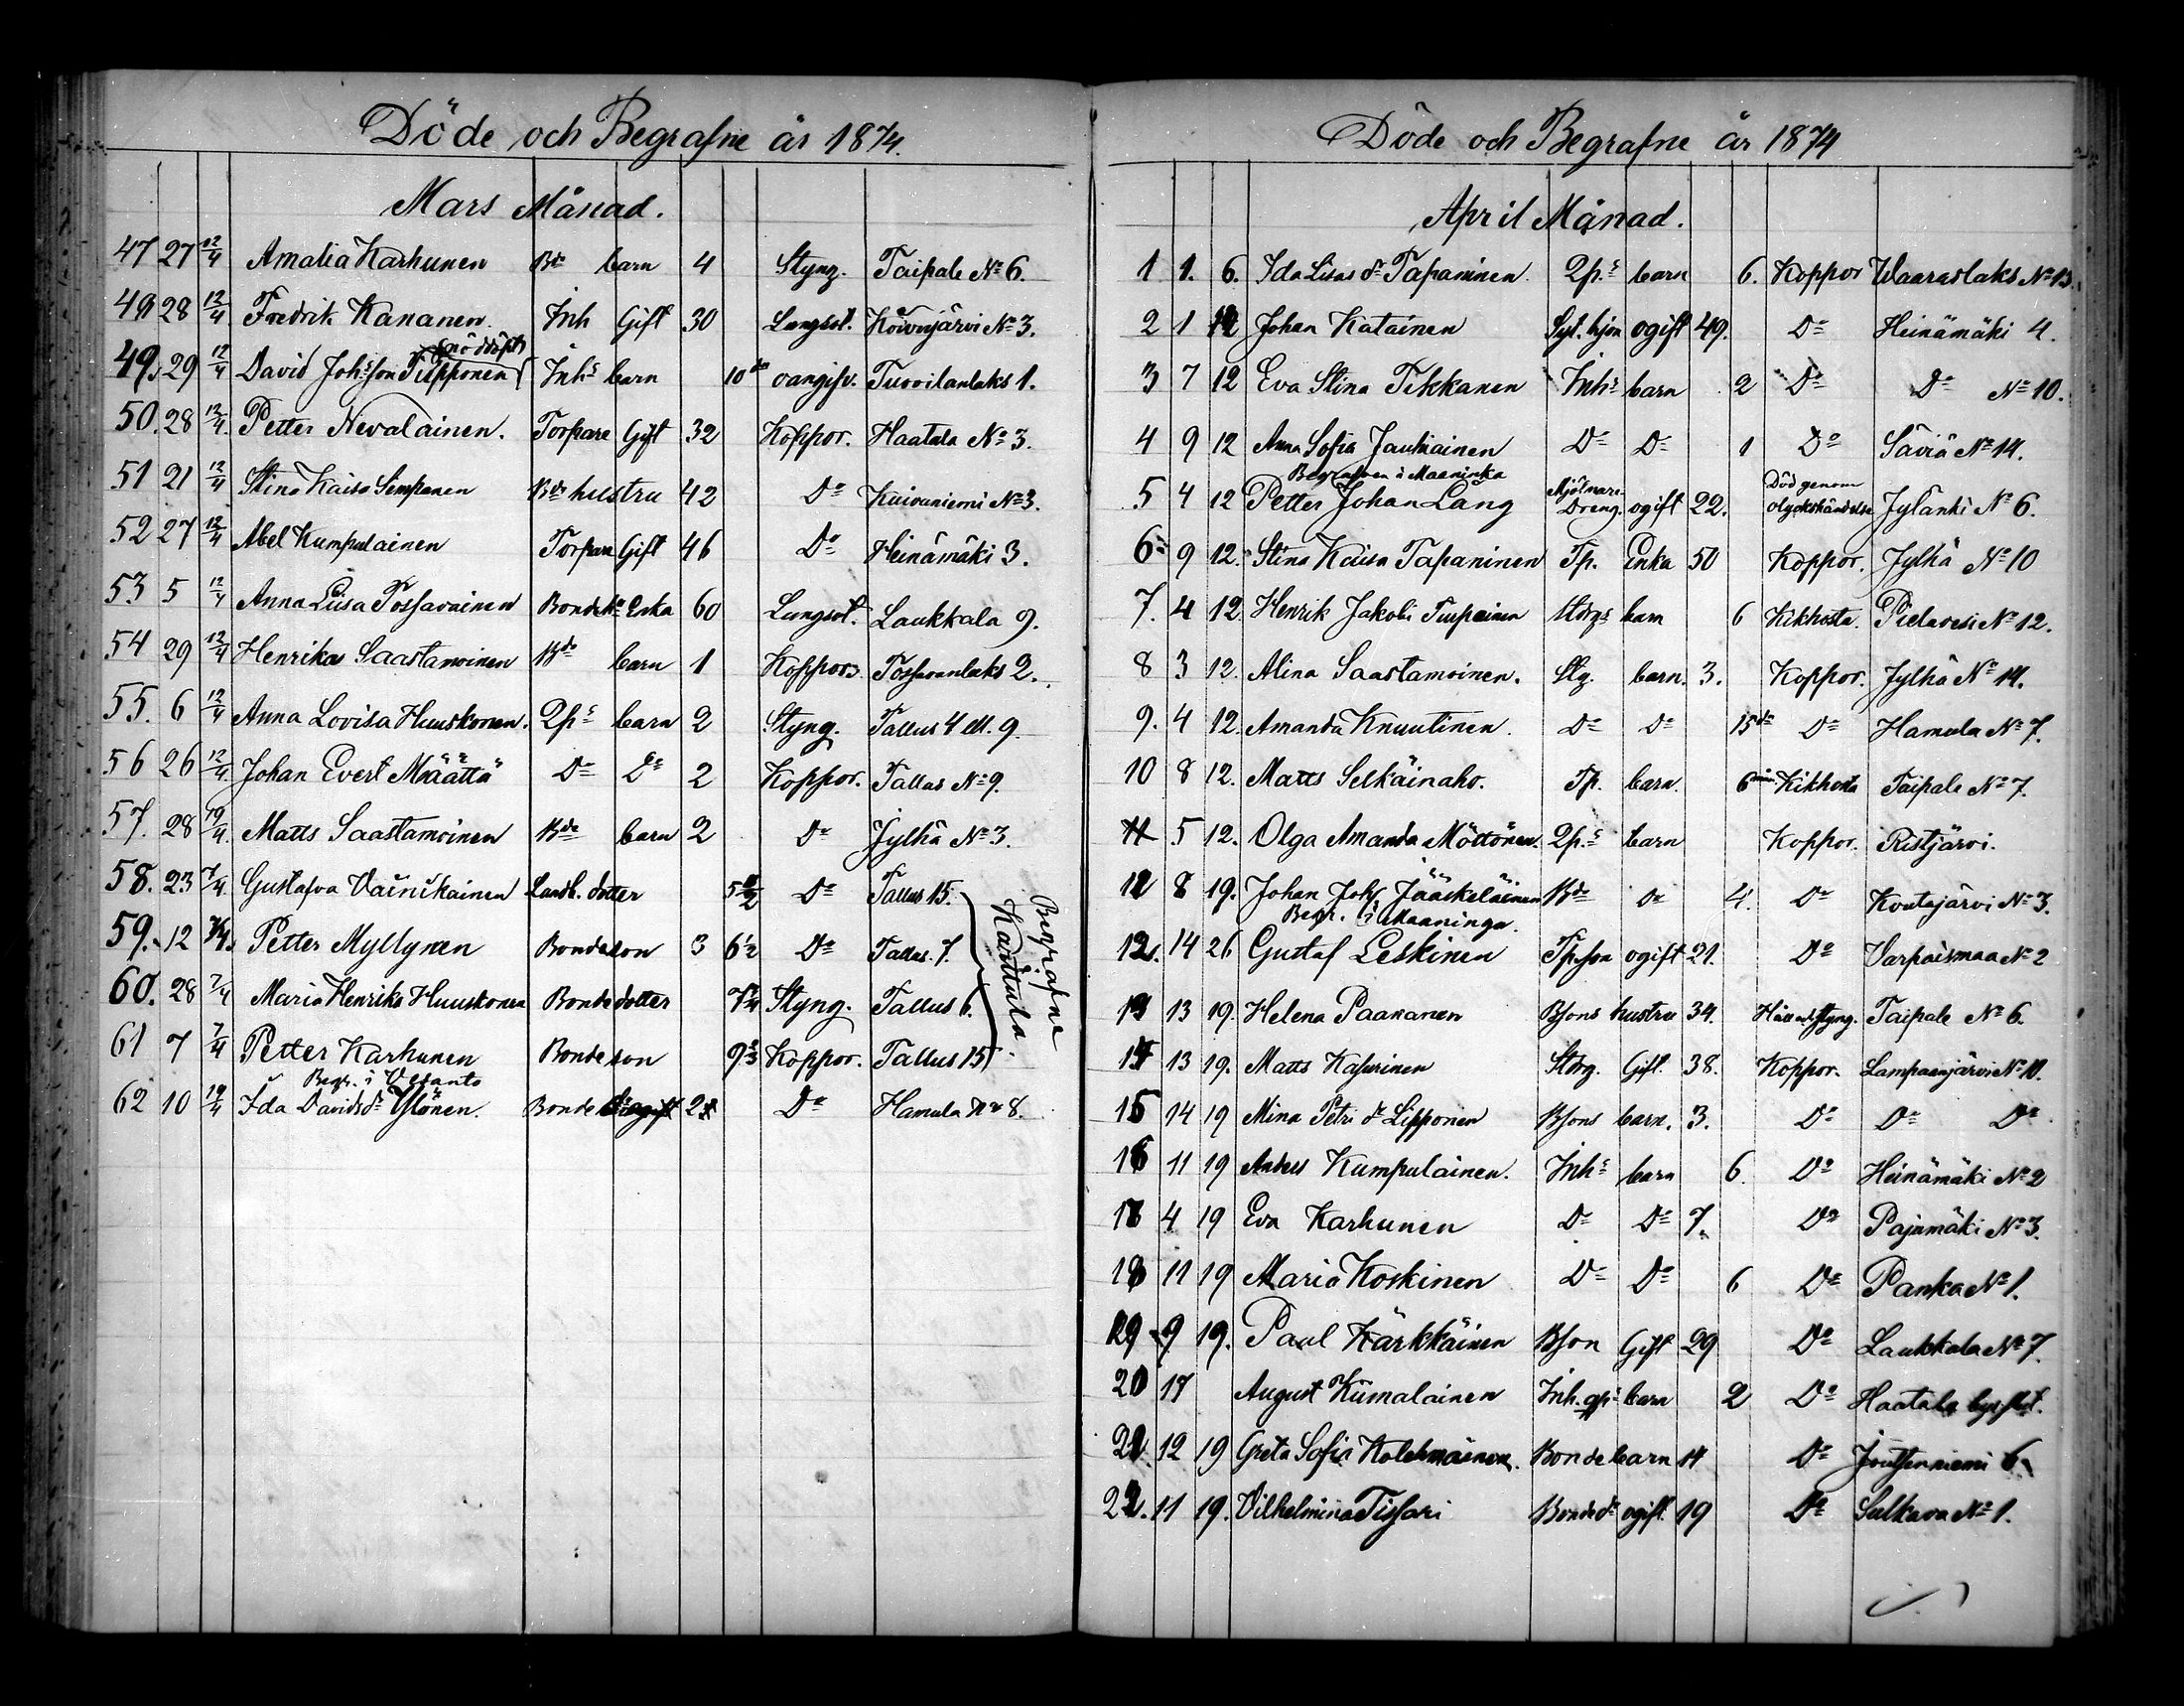 Döde och Begrafne år 1874.
Mars Månad.
47 27 12/4 Amalia Karhunen Bde barn 4 Styng. Taipale No 6.
49 28 12/4 Fredrik Kananen Inh Gift 30 Lungsot. Koivujärvi No 3.
nöddöpt
49. 29 12/4 David Johsson Tupponen Inhs barn 10 dr oangifv. Tuovilanlaks 1.
50. 28 12/4. Petter Nevalainen. Torpare Gift 32 Koppor. Haatala No 3.
51 21 12/4 Stina Kaisa Simpanen Bde hustru 42 Do Kaivaniemi No 3.
52 27 12/4 Abel Kumpulainen Torpare Gift 46 Do Heinämäki 3.
53 5 12/4 Anna Liisa Possavainen Bonde Enka 60 Lungsot. Laukkala 9.
54 29 12/4 Henrika Saastamoinen Bde barn 1 Koppor Tossavanlaks 2.
55. 6 12/4 Anna Lovisa Huuskonen. Lps barn 2 Styng. Tallus 4 ell. 9.
56 26 12/4. Johan Evert Määttä Do Do 2 Koppor. Tallus No 9.
57. 28 19/4. Matts Saastamoinen Bde barn 2 Do Jylhä No 3.
58. 23 7/4 Gustafva Vainikainen Landb. dotter Do Tallus 15.
59. 12 7/4. Petter Myllynen Bondeson 3 6 1/2 Do Tallus. 7.
60. 28 7/4 Maria Henrika Huuskonen Bondedotter Styng. Tallus 6.
61 7 7/4 Petter Karhunen Bondeson Koppor. Tallus 15
Begrafne Karttula
Begr. i Vesanto
62 10 19/4 Ida Davidsdr Ylönen. Bonde ogift Do Hamula No 8.
Döde och Begrafne år 1874
April Månad.
1 1. 6. Ida Lisas dr Tapaninen. Lps barn 6. Koppor Waaraslaks No 13.
2 1 12 Johan Katainen Syt. hjon ogift 49. Do Heinämäki 4.
3 7 12 Eva Stina Tikkanen Inhs barn 2 Do Do No 10.
4 9 12 Anna Sofia Jauhiainen Do Do 1 Do Säviä No 14.
Begrafven i Maaninka
5 4 12 Petter Johan Lang Mjölnare Dreng. ogift 22. Död genom olyckshändelse Jylänki No 6.
6 9 12. Stina Kaisa Tapaninen Tp. Enka 50 Koppor. Jylhä No 10
7. 4 12. Henrik Jakobi Turpeinen Stdrgs barn 6 Kikhosta. Pielavesi No 12.
8 3 12. Alina Saastamoinen. Stg. barn. 3. Koppor. Jylhä No 14.
9. 4 12. Amanda Knuutinen. Do Do 15 dr Do Hamula No 7.
10 8 12. Matts Selkäinaho. Tp. barn. 6 mån Kikhosta Taipale No 7.
11 5 12. Olga Amanda Möttönen Lps barn Koppor. Ristjärvi.
12 8 19. Johan Johs. Jääskeläinen Bde Do 4. Do Koutajärvi No 3.
Begr. i Maaninga.
12. 14 26 Gustaf Leskinen Tpson ogift 21. Do Varpaismaa No 2
13 13 19. Helena Paananen Bsons hustru 34. Häll o styng. Taipale No 6.
14 13 19. Matts Kasurinen Stdrg. Gift. 38. Koppor. Lampaanjärvi No 10.
15 14 19 Mina Petri dr Lipponen Bsons barn. 3. Do Do Do
16 11 19 Anders Kumpulainen. Inhs barn 6. Do Heinämäki No 2
17 4 19 Eva Karhunen Do Do 7. Do Pajumäki No 3.
18 11 19 Maria Koskinen Do Do 6 Do Panka No 1.
19 9 19. Paul Kärkkäinen Bson Gift 29 Do Laukkala No 7.
20 17 August Kumalainen Inh. barn 2 Do Haatala
21 12 19 Greta Sofia Kolehmainen. Bonde barn 14 Do Joutsenniemi 6.
22. 11 19. Vilhelmina Tissari Bonde dr ogift 19 Do Sulkava No 1.